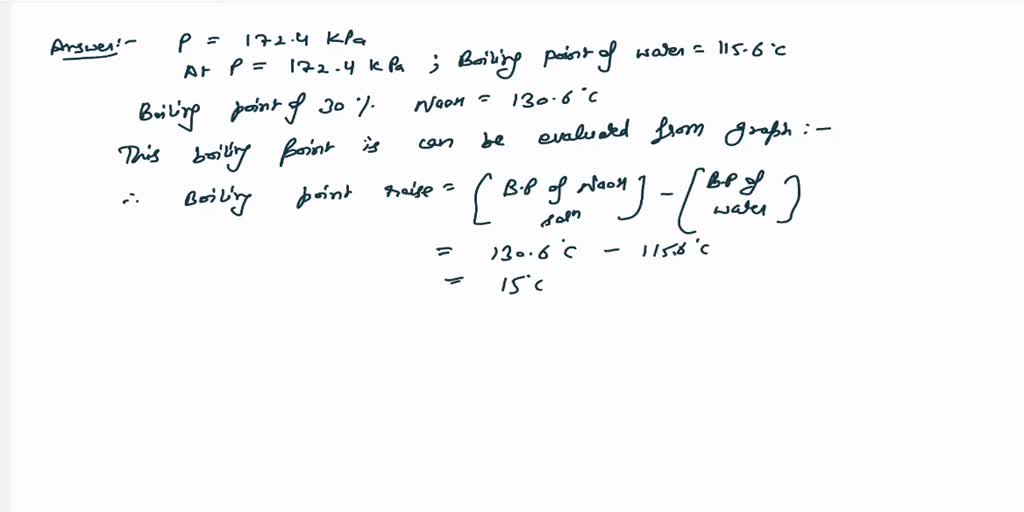 Answer:- P = 172.4 KPa
At P = 172.4 KPa ; Boiling point of water = 115.6°C
Boiling point of 30 %. NaOH = 130.6°C
This boiling point is can be evaluated from graph :-
∴ Boiling point raise = [B.P of NaOH soln] - [B.P of water]
= 130.6°C - 115.6°C
= 15°C